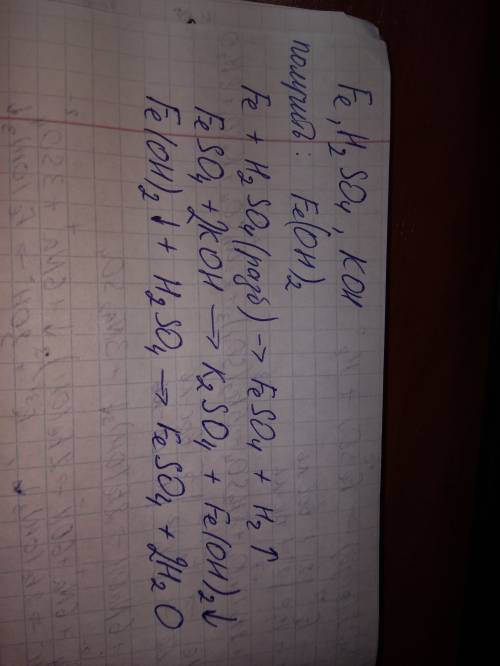 Fe, H₂SO₄, KOH
получить: Fe(OH)₂
Fe + H₂SO₄(разб) → FeSO₄ + H₂↑
FeSO₄ + 2KOH → K₂SO₄ + Fe(OH)₂↓
Fe(OH)₂↓ + H₂SO₄ → FeSO₄ + 2H₂O